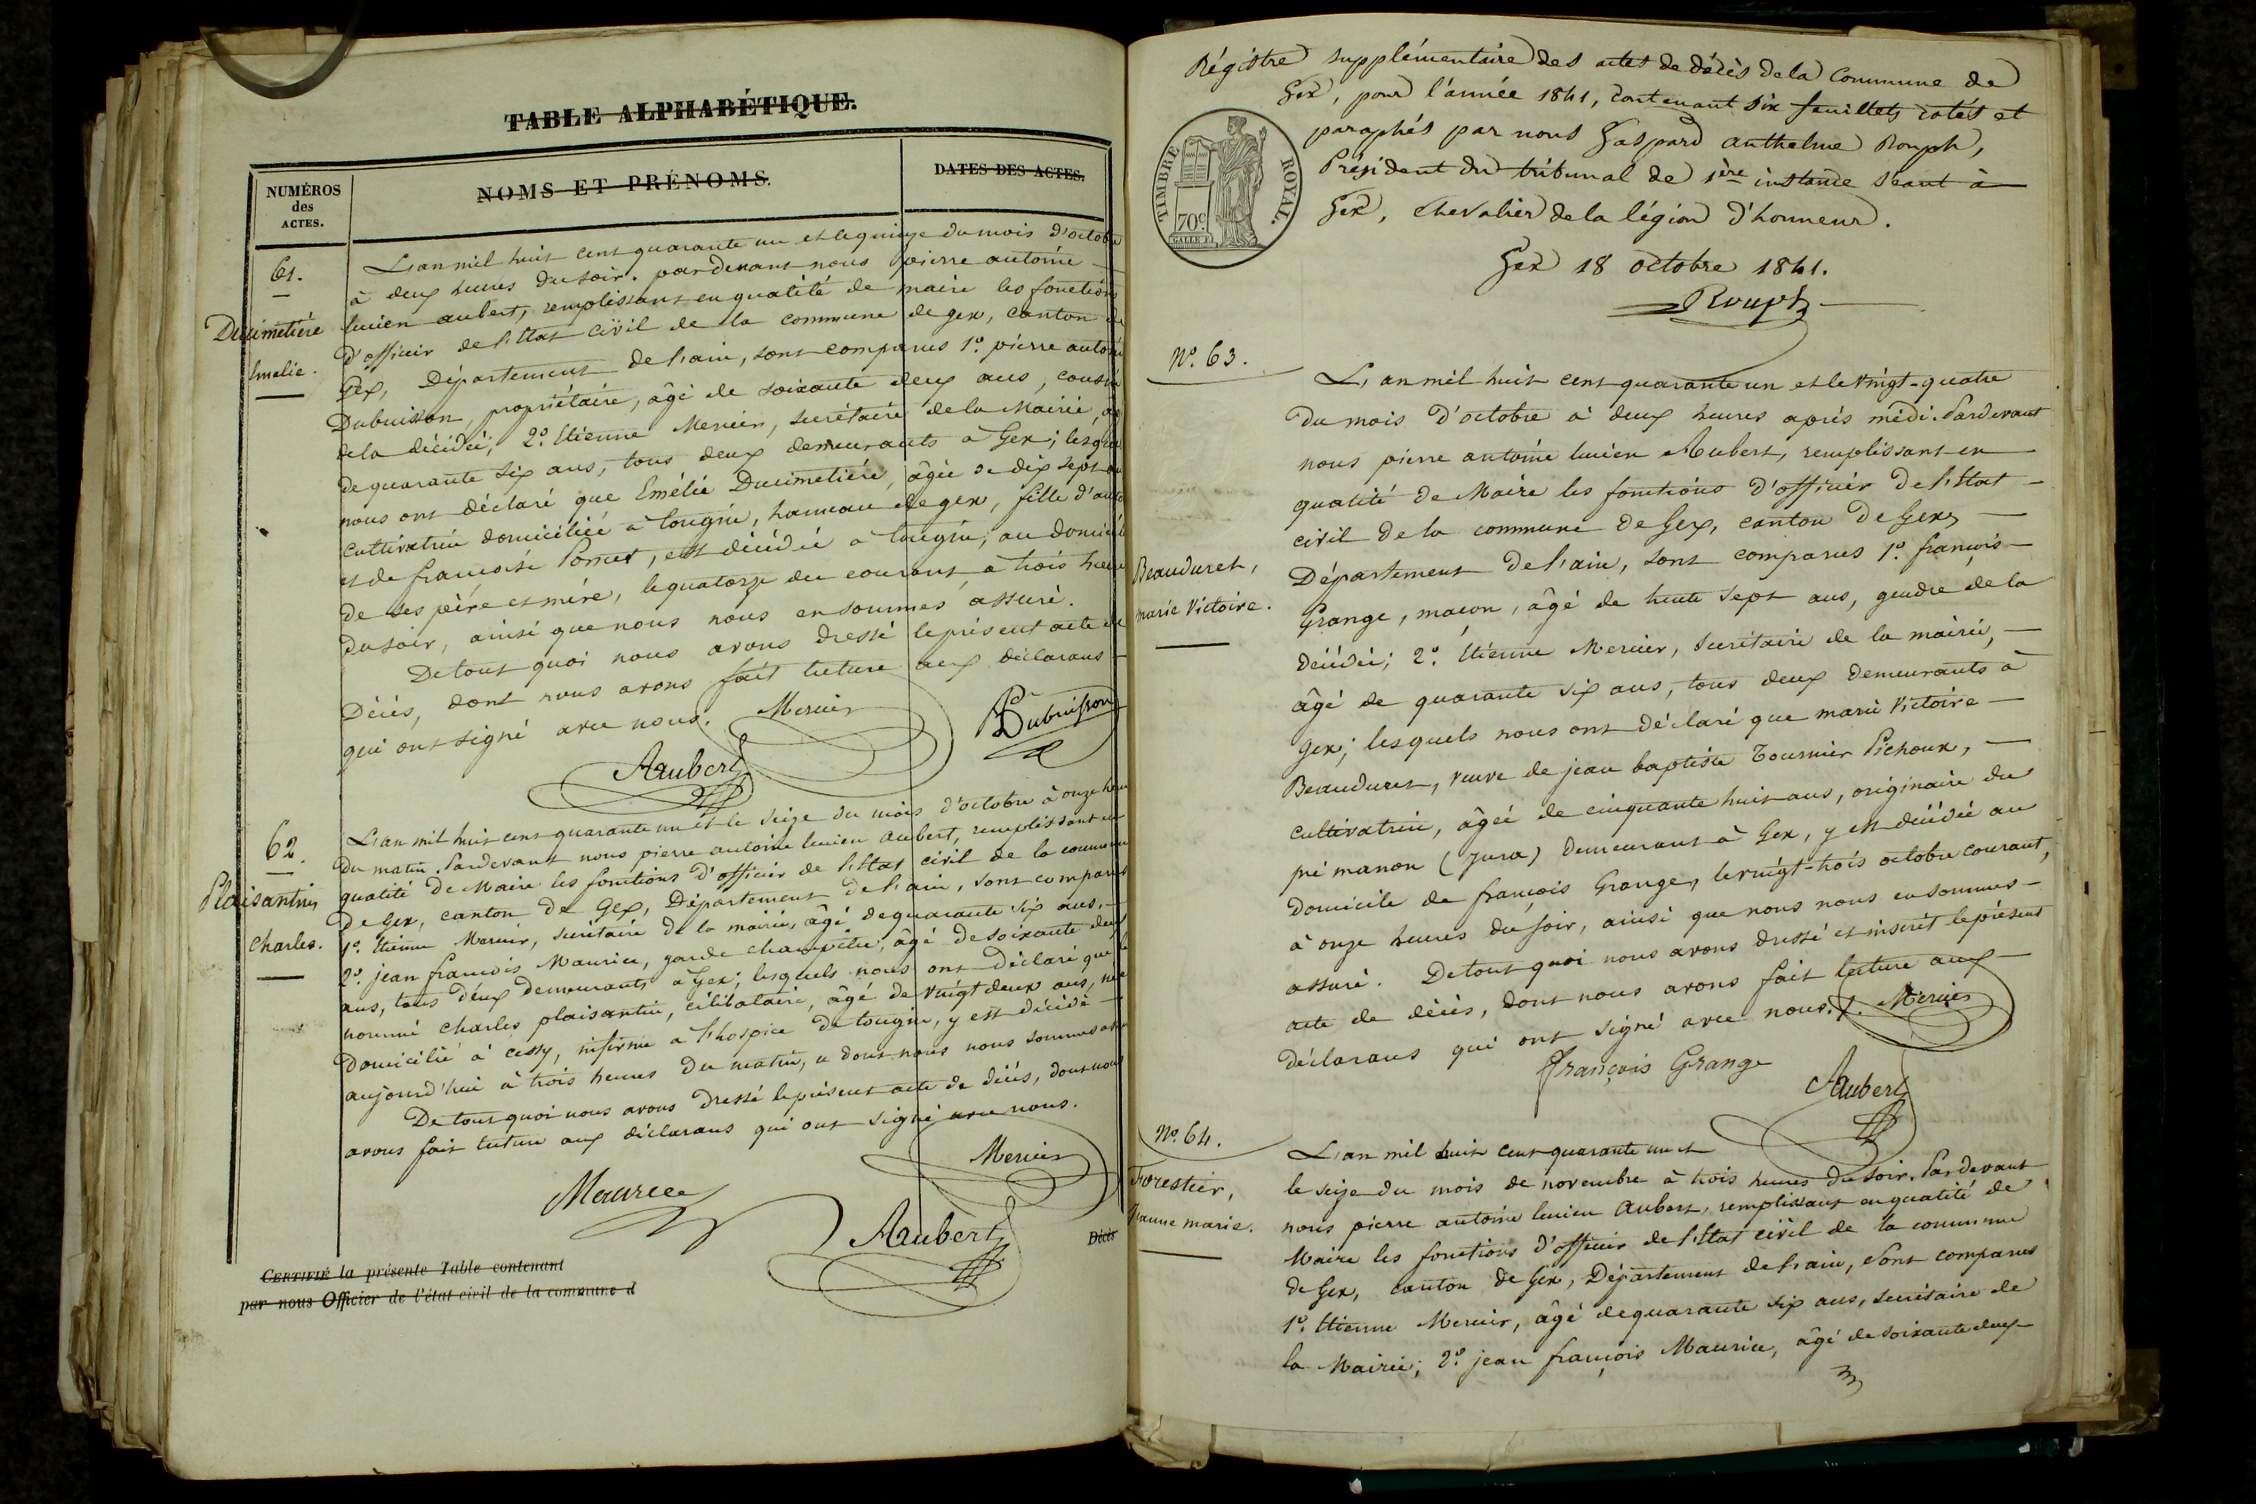 TABLE ALPHABÉTIQUE.
NUMÉROS
des
ACTES.
NOMS ET PRÉNOMS.
DATES DES ACTES.
61.
Ducimetière
Emelie.
L'an mil huit cent quarante un et le quinze du mois d'octobre
à deux heures du soir. pardevant nous pierre antoine
lucien aubert, remplissant en qualité de maire les fonctions
d'officier de l'état civil de la commune de gex, canton de
Gex, Département de l'ain, sont comparus 1º. pierre antoine
Dubuisson, propriétaire, âgé de soixante deux ans, cousin
de la décédée; 2º. Etienne Mercier, secrétaire de la Mairie, âgé
de quarante six ans, tous deux demeurants à Gex; lesquels
nous ont déclaré que Emélie Ducimetière, âgée de dix sept ans
cultivatrice domiciliée à tougin, hameau de gex, fille d'
et de francoise Pomet, est décédée à tougin, au domicile
de ses père et mère, le quatorze du courant à trois heures
du soir, ainsi que nous nous en sommes assuré.
De tout quoi nous avons dressé le présent acte de
Décès, dont nous avons fait lecture aux déclarans
qui ont signé avec nous.
Mercier
Dubuisson
Aubert
62.
Plaisantin
charles.
L'an mil huit cent quarante un et le seize du mois d'octobre à onze heures
du matin. Pardevant nous pierre antoine lucien aubert, remplissant en
qualité de Maire les fonctions d'officier de l'état civil de la commune
de Gex, canton de Gex, Département de l'ain, sont comparus
1º. Etienne Mercier, secrétaire de la mairie, âgé de quarante six ans,
2º. jean francois Maurice, garde champêtre, âgé de soixante deux
ans, tous deux demeurants à Gex; lesquels nous ont déclaré que le
nommé charles plaisantin, célibataire, âgé de vingt deux ans,
domicilié à cessy, infirme a l'hospice de tougin, y est décédé
aujourd'hui à trois heures du matin, ce dont nous nous sommes
De tout quoi nous avons dressé le présent acte de décès, dont nous
avons fait lecture aux déclarans qui ont signé avec nous.
Mercier
Maurice
Aubert
Décès
CERTIFIÉ la présente Table contenant
par nous Officier de l'état civil de la commune d
Régistre supplémentaire des actes de décès de la Commune de
Gex, pour l'année 1841, contenant six feuillets cotés et
paraphés par nous Gaspard anthelme Rouph,
Président du tribunal de 1ère instance séant à
Gex, chevalier de la légion d'honneur.
TIMBRE ROYAL.
70c
GALLE F.
Gex 18 octobre 1841.
Rouph
Nº. 63.
Beauduret,
marie Victoire.
L'an mil huit cent quarante un et le vingt-quatre
du mois d'octobre à deux heures après midi. Pardevant
nous pierre antoine lucien Aubert, remplissant en
qualité de Maire les fonctions d'officier de l'état
civil de la commune de Gex, canton de Gex,
Département de l'ain, sont comparus 1º. françois
Grange, macon, âgé de trente sept ans, gendre de la
décédée; 2º. Etienne Mercier, Secrétaire de la mairie,
âgé de quarante six ans, tous deux demeurants à
Gex; lesquels nous ont déclaré que marie Victoire
Beauduret, veuve de jean baptiste Tournier Pichoux,
cultivatrice, âgée de cinquante huit ans, originaire du
pré manon (Jura) demeurant à Gex, y est décédée au
domicile de françois Grange, le vingt-trois octobre courant,
à onze heures du soir, ainsi que nous nous en sommes
assuré. De tout quoi nous avons dressé et inscrit le présent
acte de décès, dont nous avons fait lecture aux
déclarans qui ont signé avec nous.
Mercier
François Grange
Aubert
Nº. 64.
Forestier,
jeanne marie.
L'an mil huit cent quarante un et
le seize du mois de novembre à trois heures du soir. Pardevant
nous pierre antoine lucien Aubert, remplissant en qualité de
Maire les fonctions d'officier de l'état civil de la commune
de Gex, canton de Gex, Département de l'ain, sont comparus
1º. Etienne Mercier, âgé de quarante six ans, secrétaire de
la Mairie; 2º. jean françois Maurice, âgé de soixante deux